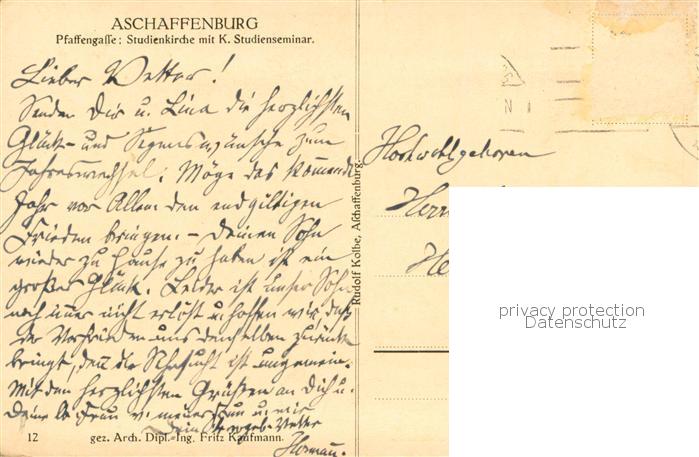 ASCHAFFENBURG
Pfaffengasse: Studienkirche mit K. Studienseminar.
Lieber Vetter!
Senden Dir u. Lina die herzlichsten
Glück- und Segenswünsche zum
Jahreswechsel. Möge das kommende
Jahr vor Allem den endgültigen
Frieden bringen. – Deinen Sohn
wieder zu Hause zu haben ist ein
großes Glück. Leider ist unser Sohn
noch immer nicht erlöst u. hoffen wir, daß
der Vorfrieden uns denselben zurück
bringt, denn die Sehnsucht ist ungemein.
Mit den herzlichsten Grüßen an Dich u.
Deine lb Frau v. meiner Frau u. mir
Dein Vetter
Herman.
12
gez. Arch. Dipl.-Ing. Fritz Kaufmann.
Rudolf Kolbe, Aschaffenburg.
Hochwohlgeboren
Herrn
privacy protection
Datenschutz